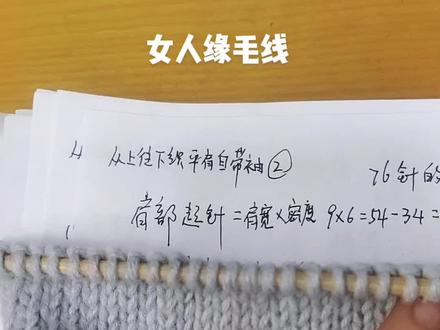 女人缘毛线
4 从上往下织平肩自带袖②
76针的
肩部起针=肩宽×密度 9×6=54-34=